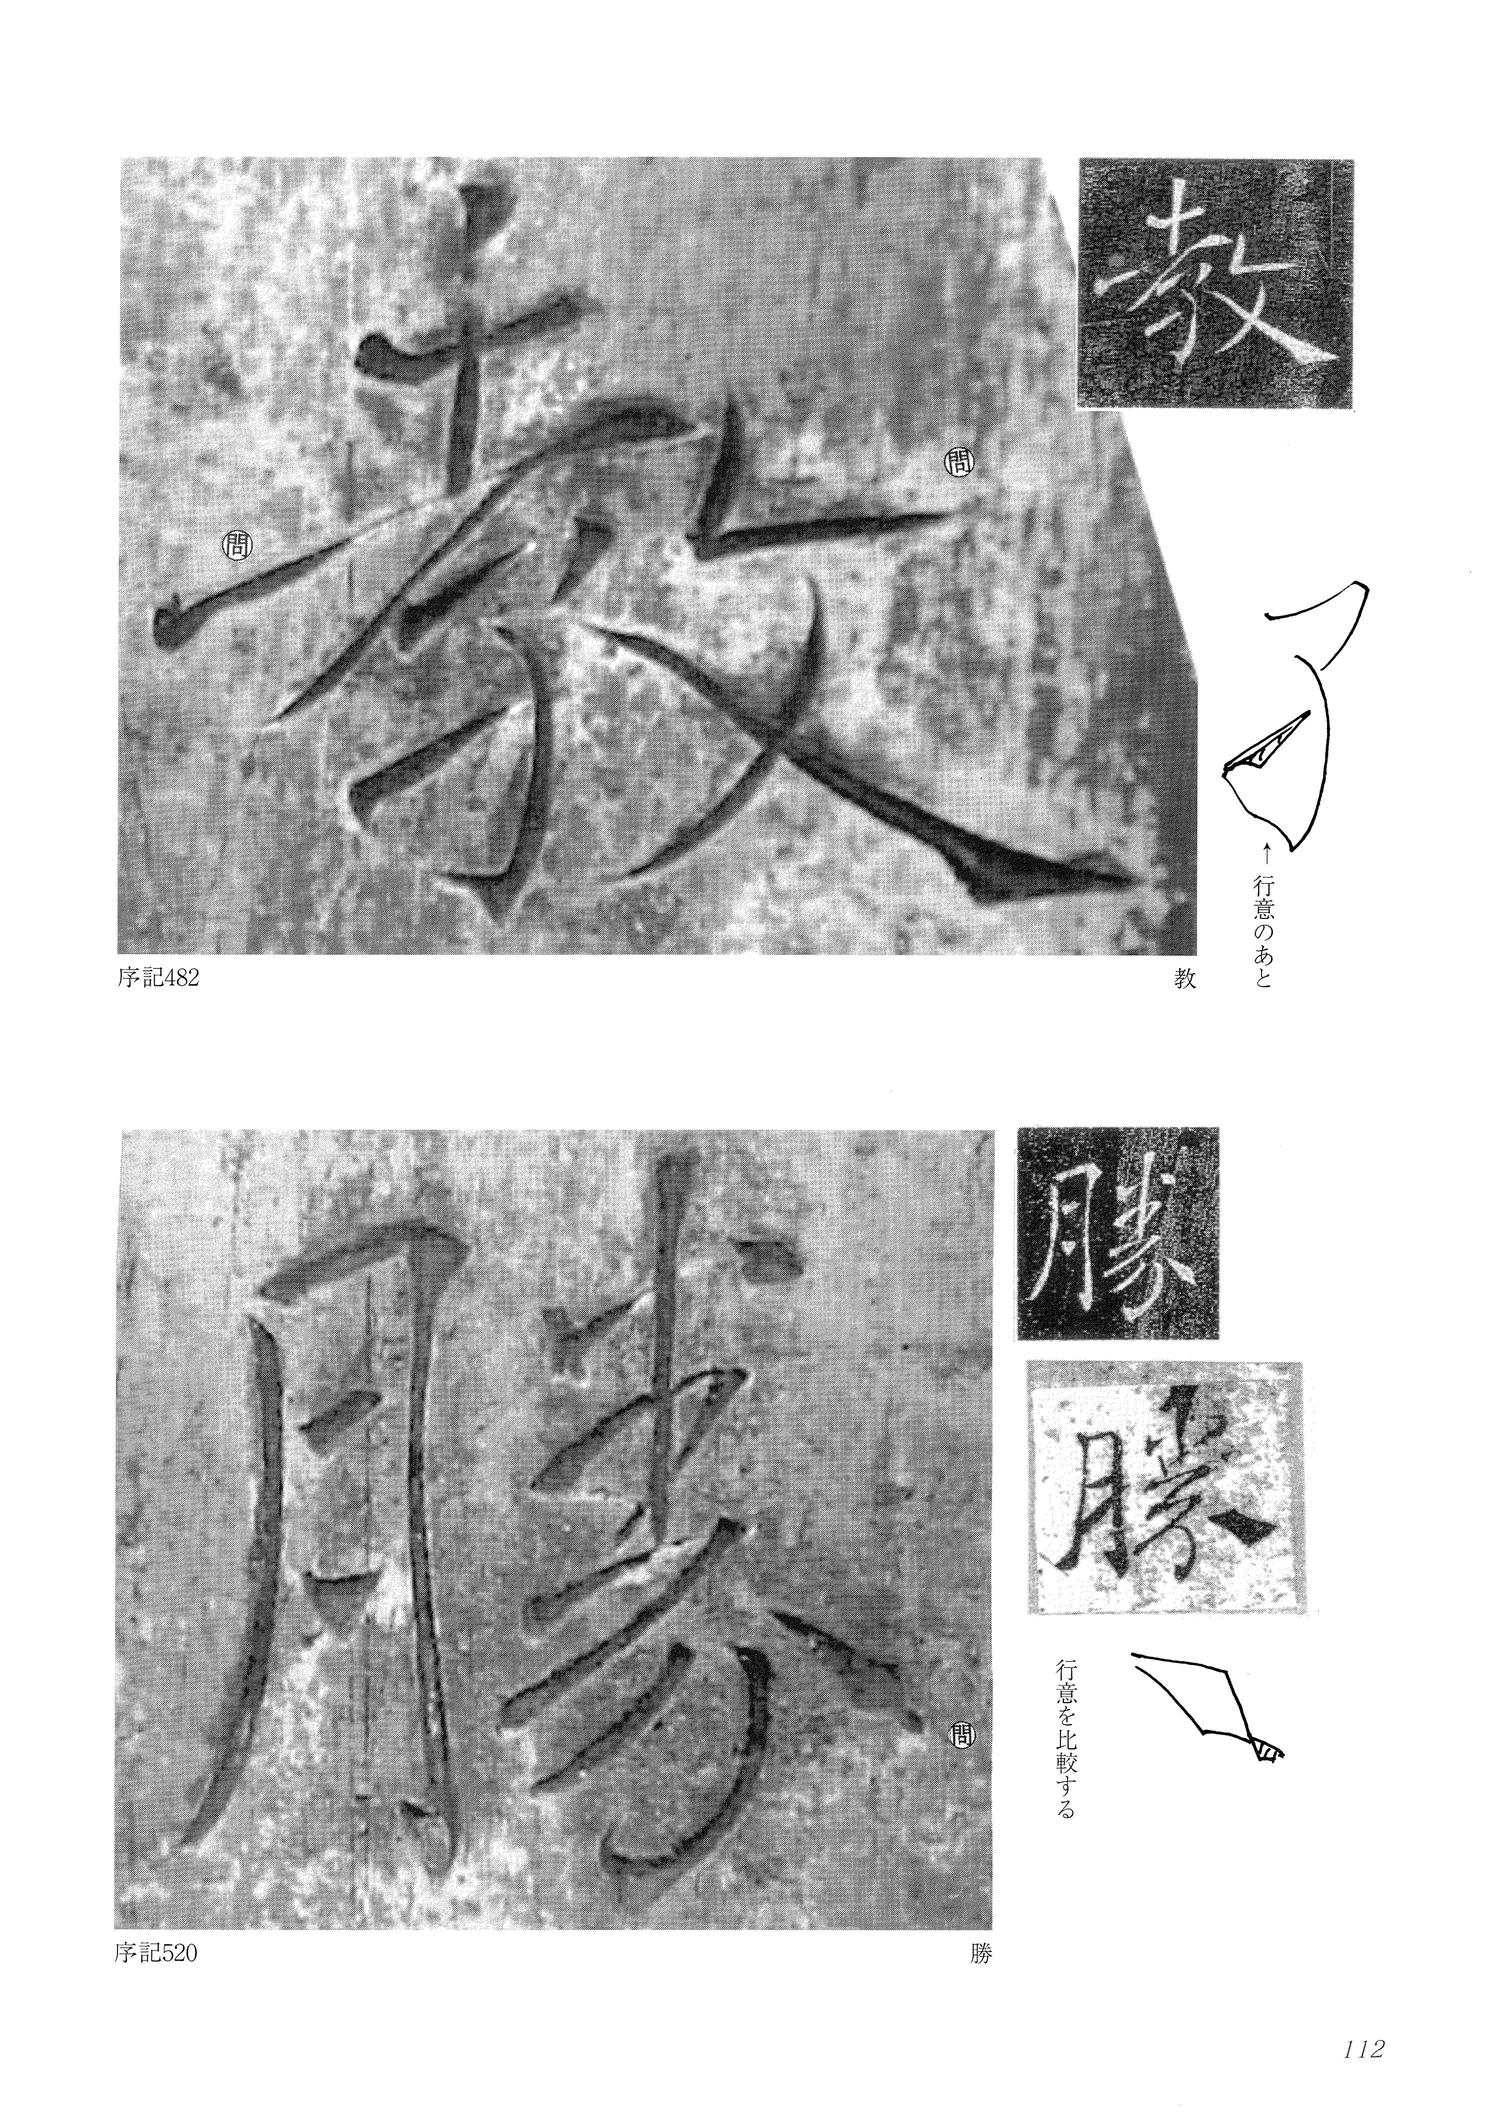 教
教
㉄
㉄
↑行意のあと
序記482
教
勝
勝
勝
㉄
行意を比較する
序記520
勝
112